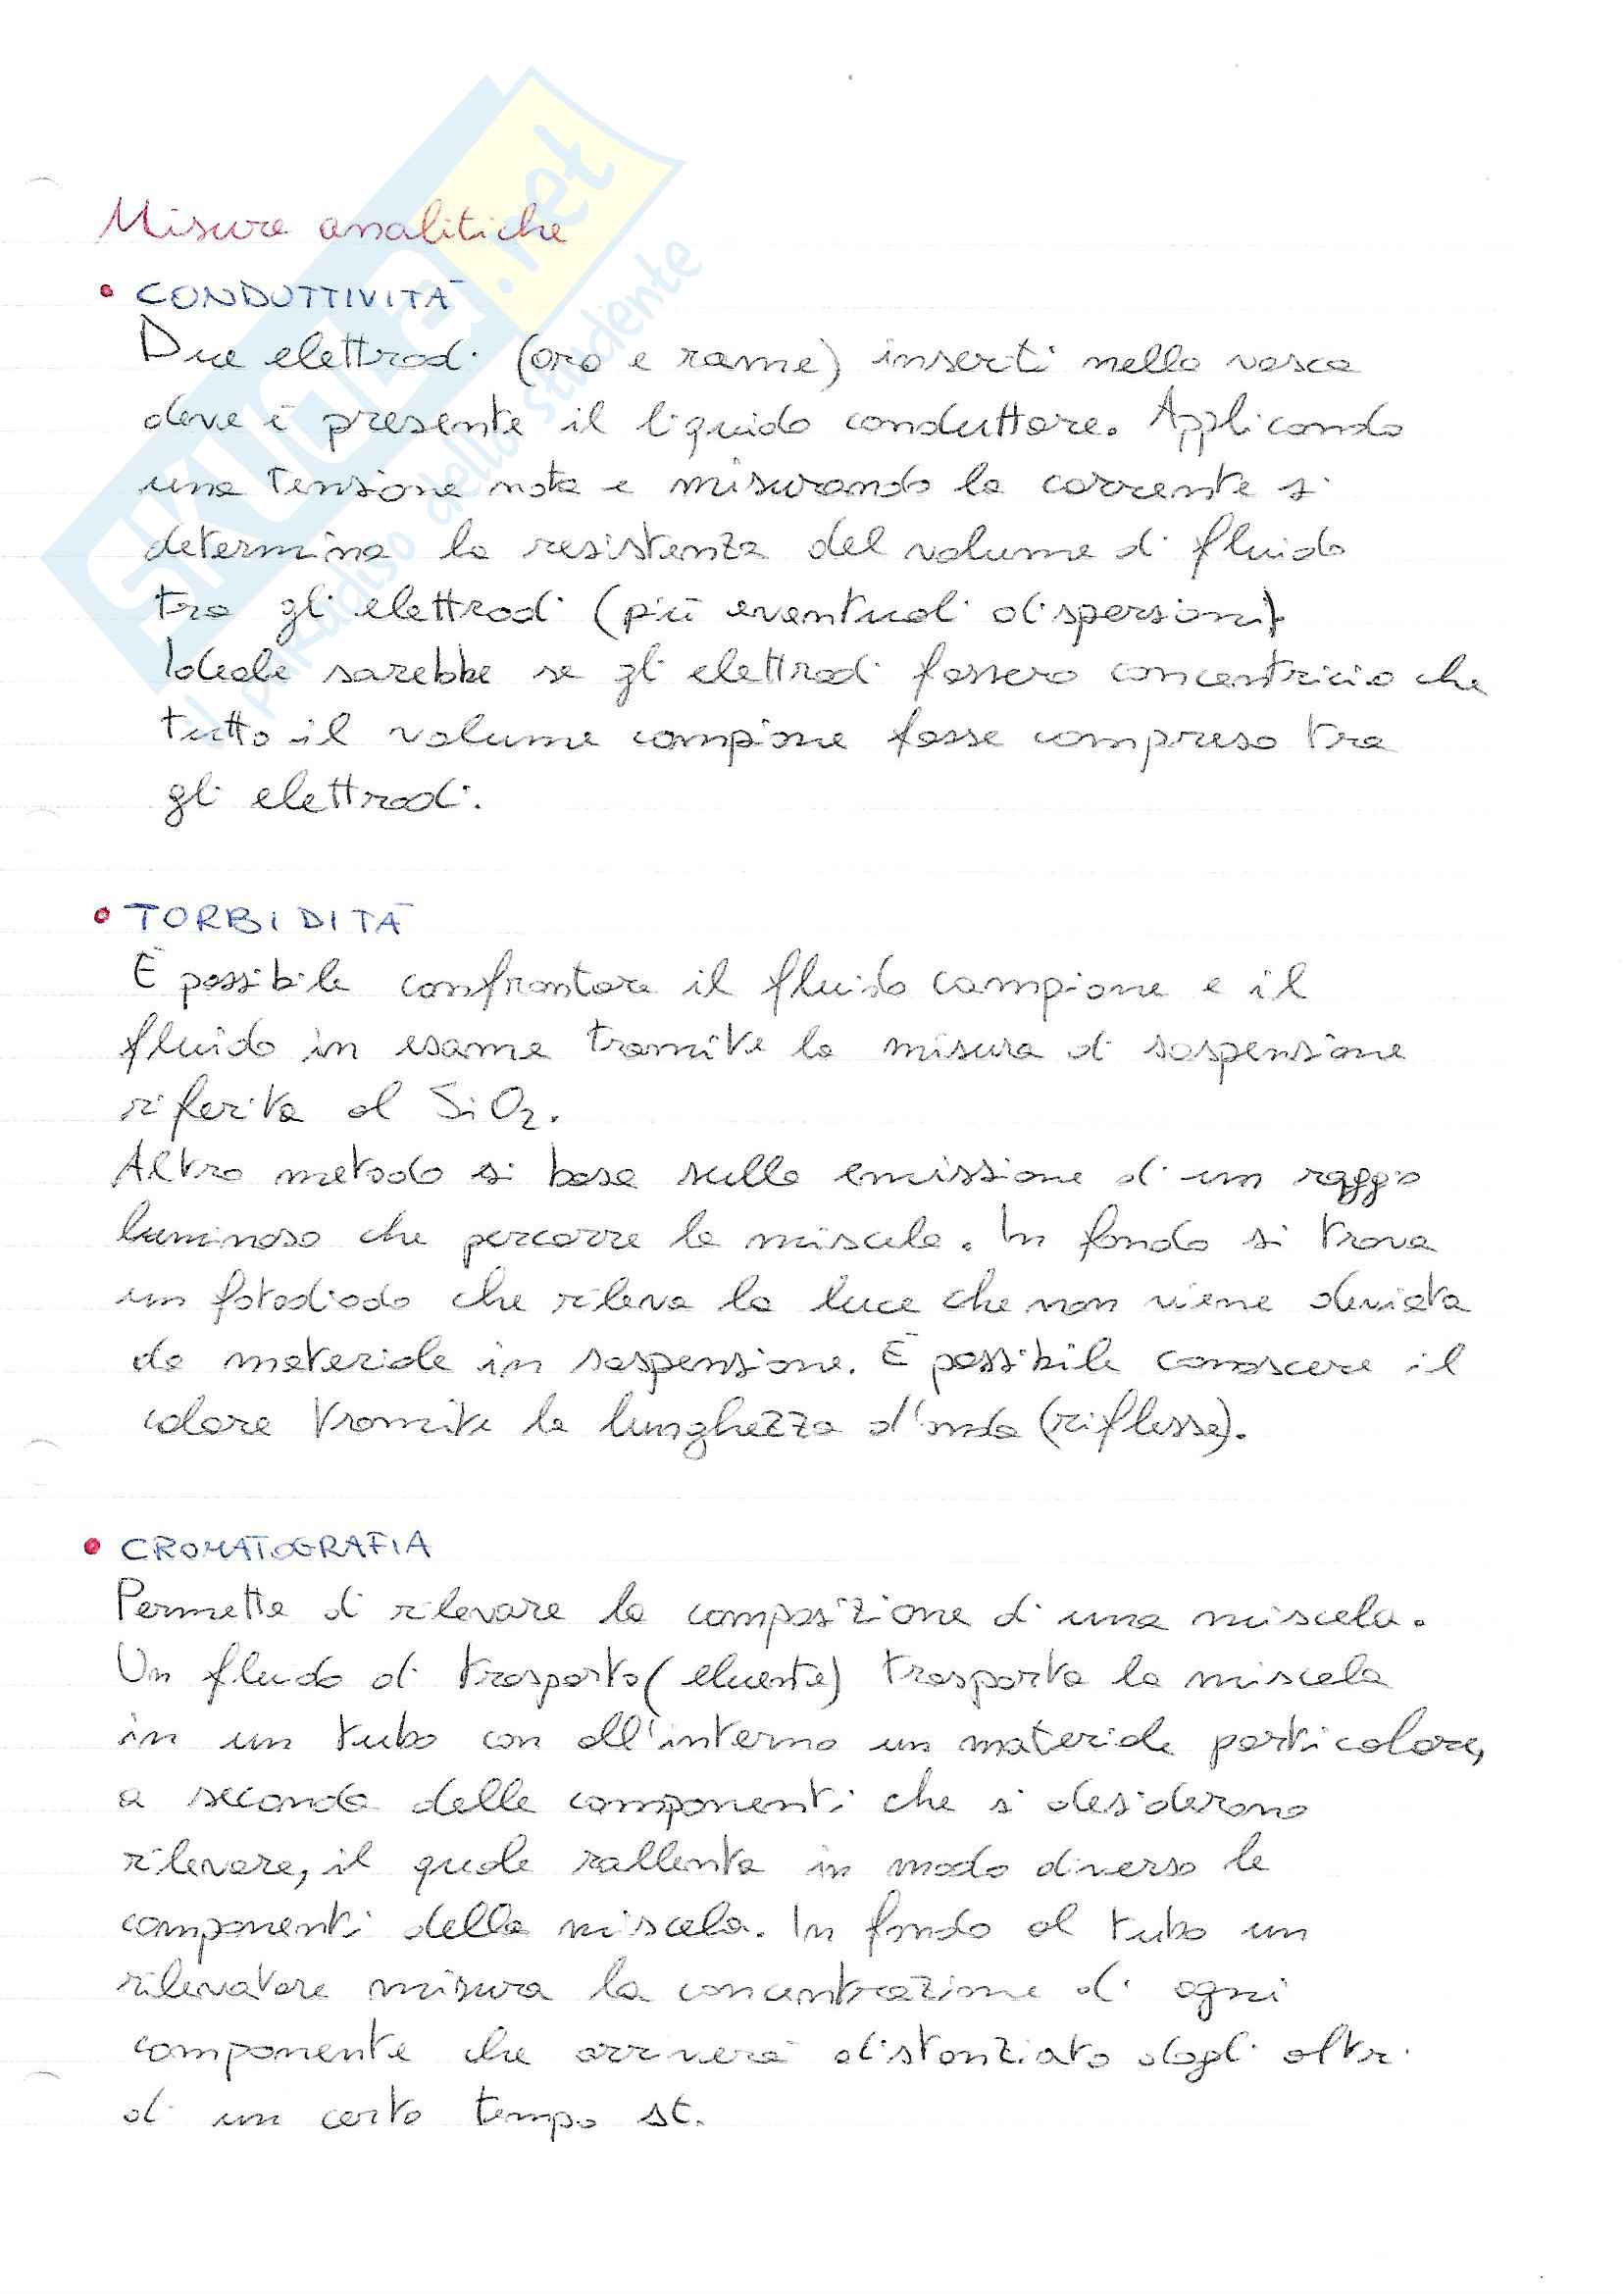 Misure analitiche
• CONDUTTIVITÀ
Due elettrodi (oro e rame) inseriti nella vasca
dove è presente il liquido conduttore. Applicando
una tensione nota e misurando la corrente si
determina la resistenza del volume di fluido
tra gli elettrodi (più eventuali dispersioni)
Ideale sarebbe se gli elettrodi fossero concentrici e che
tutto il volume campione fosse compreso tra
gli elettrodi.
• TORBIDITÀ
È possibile confrontare il fluido campione e il
fluido in esame tramite la misura di sospensione
riferita al SiO2.
Altro metodo si basa sulla emissione di un raggio
luminoso che percorre la miscela. In fondo si trova
un fotodiodo che rileva la luce che non viene deviata
da materiale in sospensione. È possibile conoscere il
colore tramite la lunghezza d'onda (riflessa).
• CROMATOGRAFIA
Permette di rilevare la composizione di una miscela.
Un fluido di trasporto (eluente) trasporta la miscela
in un tubo con all'interno un materiale particolare,
a seconda delle componenti che si desiderano
rilevare, il quale rallenta in modo diverso le
componenti della miscela. In fondo al tubo un
rilevatore misura la concentrazione di ogni
componente che arriverà distanziato dagli altri
di un certo tempo st.
SKUOLA.net
il paradiso dello studente